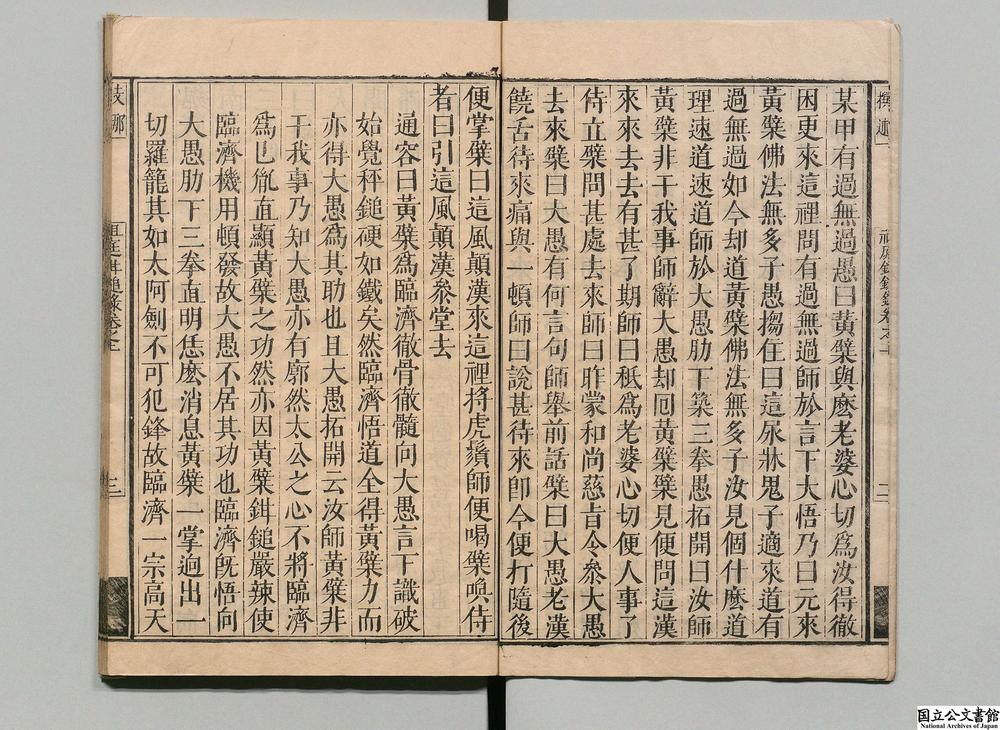 某甲有過無過愚曰黃檗與麼老婆心切為汝得徹
困更來這裡問有過無過師於言下大悟乃曰元來
黃檗佛法無多子愚搊住曰這尿牀鬼子適來道有
過無過如今却道黃檗佛法無多子汝見個什麼道
理速道速道師於大愚肋下築三拳愚拓開曰汝師
黃檗非干我事師辭大愚却囘黃檗檗見便問這漢
來來去去有甚了期師曰秖為老婆心切便人事了
侍立檗問甚處去來師曰昨蒙和尚慈旨令叅大愚
去來檗曰大愚有何言句師舉前話檗曰大愚老漢
饒舌待來痛與一頓師曰說甚待來卽今便打隨後
便掌檗曰這風顛漢來這裡捋虎鬚師便喝檗喚侍
者曰引這風顛漢叅堂去
通容曰黃檗為臨濟徹骨徹髓向大愚言下識破
始覺秤鎚硬如鐵矣然臨濟悟道全得黃檗力而
亦得大愚為其助也且大愚拓開云汝師黃檗非
干我事乃知大愚亦有廓然太公之心不將臨濟
為己胤直顯黃檗之功然亦因黃檗鉗鎚嚴辣使
臨濟機用頓發故大愚不居其功也臨濟旣悟向
大愚肋下三拳直明恁麽消息黃檗一掌迥出一
切羅籠其如太阿劍不可犯鋒故臨濟一宗高天
三
国立公文書館
National Archives of Japan